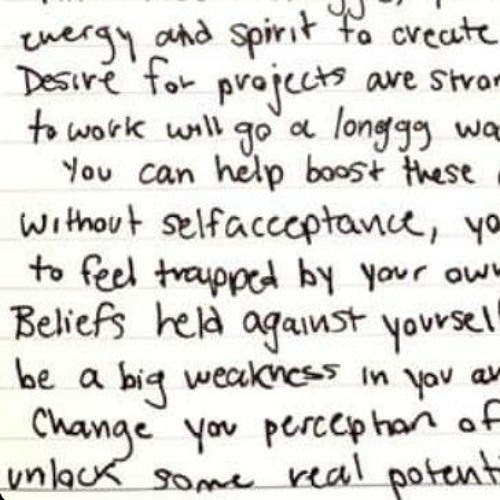 energy and spirit to create
Desire for projects are stron
to work will go a longgg wa
You can help boost these
without selfacceptance, yo
to feel trapped by your own
Beliefs held against yoursel
be a big weakness in you an
Change you perception of
unlock some real potenti